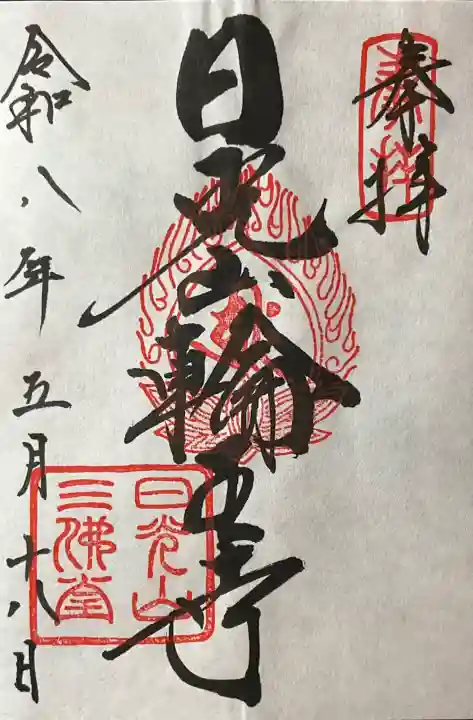 奉拝
奉拝
日光山輪王寺
日光山
三佛堂
令和八年五月十八日